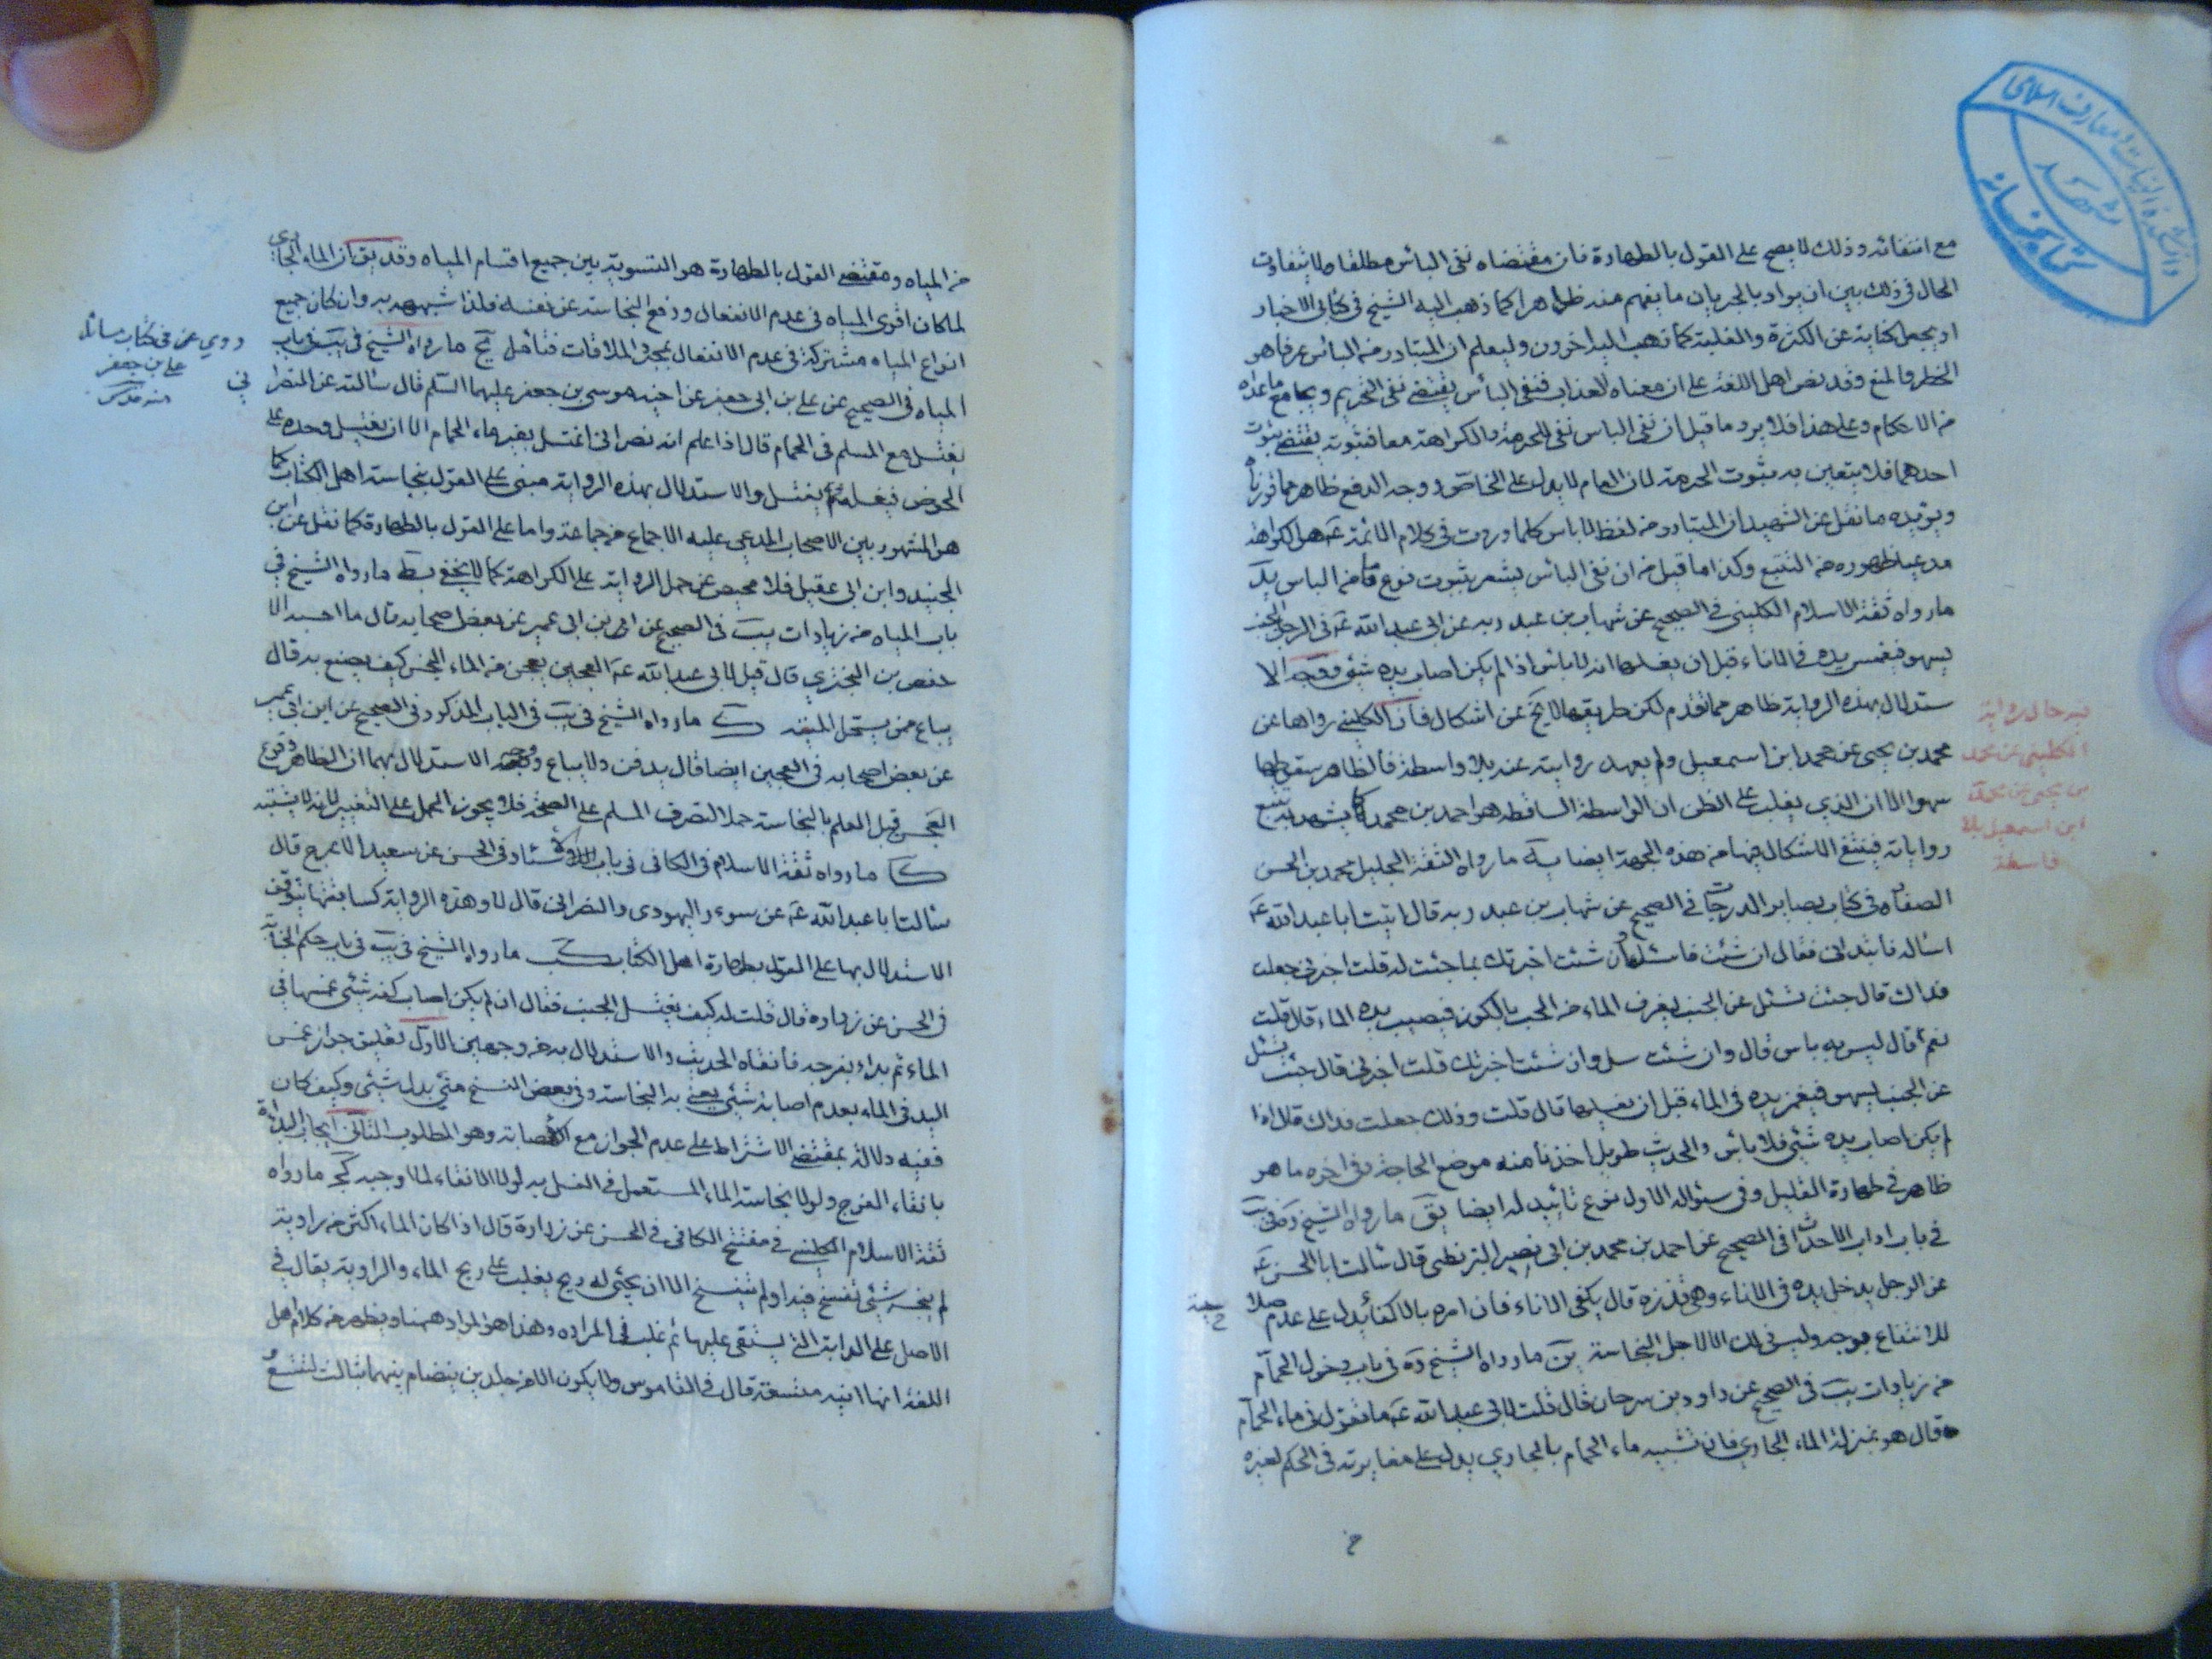 دانشکده الهیات و معارف اسلامی
مشهد
کتابخانه
مع انتفائه وذلك لا يصح على القول بالطهارة فان مقتضاه نفى الباس مطلقا ولا يتفاوت
الحال فى ذلك بين ان يراد بالجريان ما يفهم منه ظاهرا كما ذهب اليه الشيخ فى كتابى الاخبار
او يجعل كناية عن الكثرة والغلبة كما ذهب اليه اخرون وليعلم ان المتبادر من الباس عرفا هو
الحظر والمنع وقد نص اهل اللغة على ان معناه العذاب فنفى البأس يقتضى نفى التحريم ويجامع ما عداه
من الاحكام وعلى هذا فلا يرد ما قيل ان نفى الباس نفى للحرمة والكراهة معا فثبوته يقتضى ثبوت
احدهما فلا يتعين به ثبوت الحرمة لان العام لا يدل على الخاص ووجه الدفع ظاهر مما قررناه
ويؤيده ما نقل عن الشهيد ان المتبادر من لفظ لا باس كلما وردت فى كلام الائمة عم هو الكراهة
مدعيا ظهوره من التتبع وكذا ما قيل من ان نفى الباس يشعر بثبوت نوع ما من الباس يد
ما رواه ثقة الاسلام الكلينى فى الصحيح عن شهاب بن عبد ربه عن ابى عبد الله عم فى الرجل الجنب
يسهو فيغمس يده فى الاناء قبل ان يغسلها انه لا باس اذا لم يكن اصاب يده شئ ووجه الا
ستدلال بهذه الرواية ظاهر مما تقدم لكن طريقها لا يخ عن اشكال فان الكلينى رواها عن
محمد بن يحيى عن محمد ابن اسمعيل ولم يعهد روايته عنه بلا واسطة فالظاهر سقوطها
سهوا الا ان الذى يغلب على الظن ان الواسطة الساقطة هو احمد بن محمد كما يشهد به تتبع
رواياته فينتفى الاشكال فيها من هذه الجهة ايضا يه ما رواه الثقة الجليل محمد بن الحسن
الصفار فى كتاب بصاير الدرجات فى الصحيح عن شهاب بن عبد ربه قال اتيت ابا عبد الله عم
اسأله فابتدانى فقال ان شئت فاسئل وان شئت اخبرتك بما جئت له قلت اخبرنى جعلت
فداك قال جئت تسئل عن الجنب يغرف الماء من الحب بالكوز فيصيب يده الماء قال قلت
نعم قال ليس به باس قال وان شئت سل وان شئت اخبرتك قلت اخبرنى قال جئت تسئل
عن الجنب يسهو فيغمز يده فى الماء قبل ان يغسلها قال قلت وذلك جعلت فداك قال اذا
لم يكن اصاب يده شئ فلا باس والحديث طويل اخذنا منه موضع الحاجة وفى اخره ما هو
ظاهر فى طهارة القليل وفى سئواله الاول نوع تأييد له ايضا يق ما رواه الشيخ ره فى يب
فى باب اداب الاحداث فى الصحيح عن احمد بن محمد بن ابى نصر البزنطى قال سالت ابا الحسن عم
عن الرجل يدخل يده فى الاناء وهى قذرة قال يكفى الاناء فان امره بالاكفاء يدل على عدم صلا
للانتفاع بوجه وليس ذلك الا لاجل النجاسة ما رواه الشيخ ره فى باب دخول الحمام
من زيادات يب فى الصحيح عن داود بن سرحان قال قلت لابى عبد الله عم ما تقول فى ماء الحمام
قال هو بمنزلة الماء الجارى فان تشبيه ماء الحمام بالجارى يدل على مغايرته فى الحكم لغيره
فيه حال رواية
الكلينى عن محمد
بن يحيى عن محمد
ابن اسمعيل بلا
واسطة
من المياه ومقتضى القول بالطهارة هو التسوية بين جميع اقسام المياه وقد يق ان الماء الجارى
لما كان اقوى المياه فى عدم الانفعال ودفع النجاسة عن نفسه فلذا شبهه به وان كان جميع
انواع المياه مشتركة فى عدم الانفعال بمجرد الملاقات فتأمل يح ما رواه الشيخ فى يب فى باب
المياه فى الصحيح عن على بن ابى جعفر عن اخيه موسى بن جعفر عليهما السلم قال سالته عن النصرانى
يغتسل مع المسلم فى الحمام قال اذا علم انه نصرانى اغتسل بغير ماء الحمام الا ان يغتسل وحده على
الحوض فيغسله ثم يغتسل والاستدلال بهذه الرواية مبنى على القول بنجاسة اهل الكتاب كما
هو المشهور بين الاصحاب المدعى عليه الاجماع من جماعة واما على القول بالطهارة كما نقل عن ابن
الجنيد وابن ابى عقيل فلا محيص عن حمل الرواية على الكراهة كما لا يخفى يط ما رواه الشيخ فى
باب المياه من زيادات يب فى الصحيح عن ابن ابى عمير عن بعض اصحابه قال ما احسبه الا
حفص بن البخترى قال قيل لابى عبد الله عم العجين يعجن من الماء النجس كيف يصنع به قال
يباع ممن يستحل الميتة ك ما رواه الشيخ فى يب فى الباب المذكور فى الصحيح عن ابن ابى عمير
عن بعض اصحابه فى العجين ايضا قال يدفن ولا يباع ووجه الاستدلال بهما ان الظاهر وقوع
العجن قبل العلم بالنجاسة حملا لتصرف المسلم على الصحة فلا يجوز الحمل على التغيير لانه لا يشتبه
كا ما رواه ثقة الاسلام فى الكافى فى باب فى الحسن عن سعيد الاعرج قال
سالت ابا عبد الله عم عن سوءر اليهودى والنصرانى قال لا وهذه الرواية كسابقتها يتوقف
الاستدلال بها على القول بطهارة اهل الكتاب كب ما رواه الشيخ فى يب فى باب حكم الجنابة
فى الحسن عن زرارة قال قلت له كيف يغتسل الجنب فقال ان لم يكن اصاب كفه شئ غمسها فى
الماء ثم بداء بفرجه فانقاه الحديث والاستدلال به من وجهين الاول تعليق جواز غمس
اليد فى الماء بعدم اصابة شئ يعنى به النجاسة وفى بعض النسخ منى بدل شئ وكيف كان
ففيه دلالة بمقتضى الاشتراط على عدم الجواز مع الاصابة وهو المطلوب الثانى ايجاب البداءة
بانقاء الفرج ولولا نجاسة الماء المستعمل فى الغسل به لولا الانقاء لما اوجبه كج ما رواه
ثقة الاسلام الكلينى فى مفتتح الكافى فى الحسن عن زرارة قال اذا كان الماء اكثر من راوية
لم ينجسه شئ تفسخ فيه او لم يتفسخ الا ان يجئ له ريح يغلب على ريح الماء والراوية يقال فى
الاصل على الدابة التى يستقى عليها ثم غلب فى المزاده وهذا هو المراد ههنا ويظهر من كلام اهل
اللغة انها انيه متسعة قال فى القاموس ولا يكون الا من جلدين ينضام بينهما بثالث لتتسع
وروى عن فى كتاب مسائل
على بن جعفر
منه